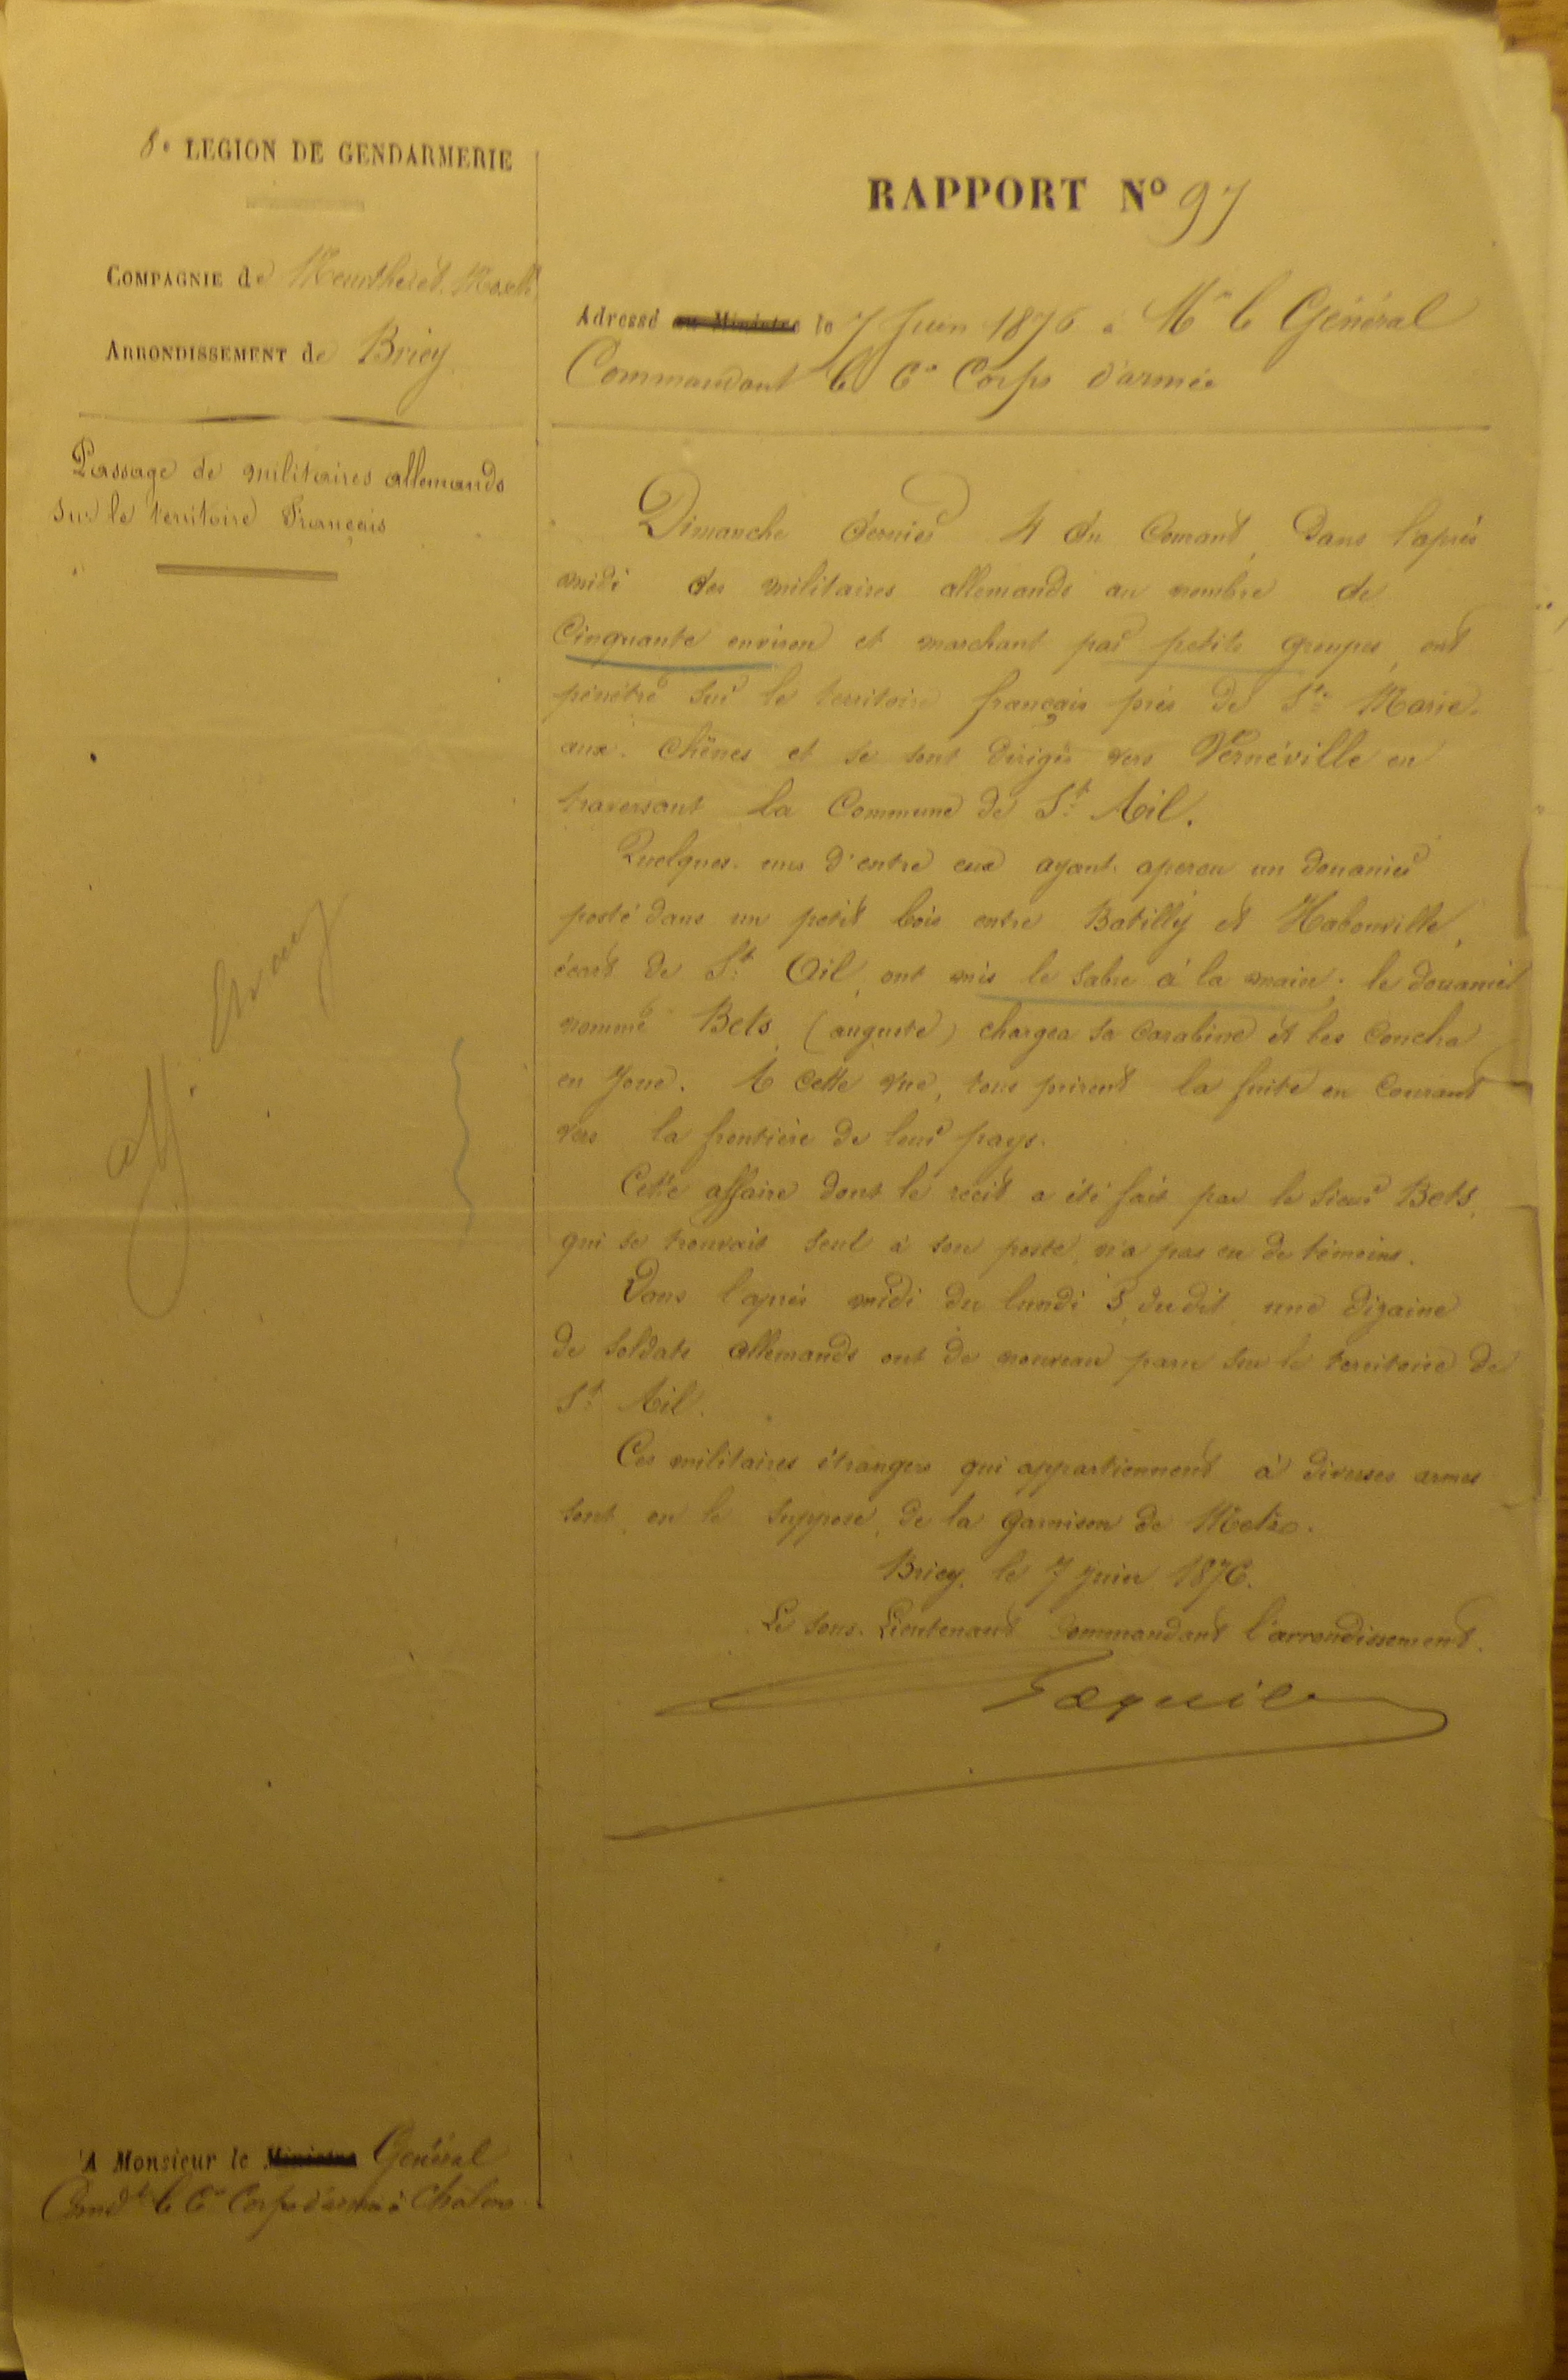 8e LEGION DE GENDARMERIE
COMPAGNIE de Meurthe et Moselle
ARRONDISSEMENT de Briey
Passage de militaires allemands
sur le territoire Français
RAPPORT No 97
Adressé au Ministre le 7 Juin 1876 à Mr le Général
Commandant le 6e Corps d'armée
Dimanche dernier 4 du Courant, Dans l'après
midi des militaires allemands au nombre de
Cinquante environ et marchant par petits groupes, ont
pénétré sur le territoire français près de Ste Marie-
aux-Chênes et se sont dirigés vers Vernéville en
traversant la Commune de St Ail.
Quelques-uns d'entre eux ayant apercu un douanier
posté dans un petit bois entre Batilly et Habonville,
écart de St Ail, ont mis le sabre à la main. le douanier
nommé Bets, (auguste) chargea sa carabine et les coucha
en joue. A cette vue, tous prirent la fuite en courant
vers la frontière de leur pays.
Cette affaire dont le récit a été fait par le sieur Bets,
qui se trouvait seul à son poste, n'a pas eu de témoins.
Dans l'après midi du lundi 5, dudit, une dizaine
de soldats allemands ont de nouveau paru sur le territoire de
St Ail.
Ces militaires étrangers qui appartiennent à diverses armes
sont, on le suppose, de la garnison de Metz.
Briey, le 7 Juin 1876.
Le sous-Lieutenant Commandant l'arrondissement.
A Monsieur le Ministre Général
Comdt le 6e Corps d'armée à Châlons